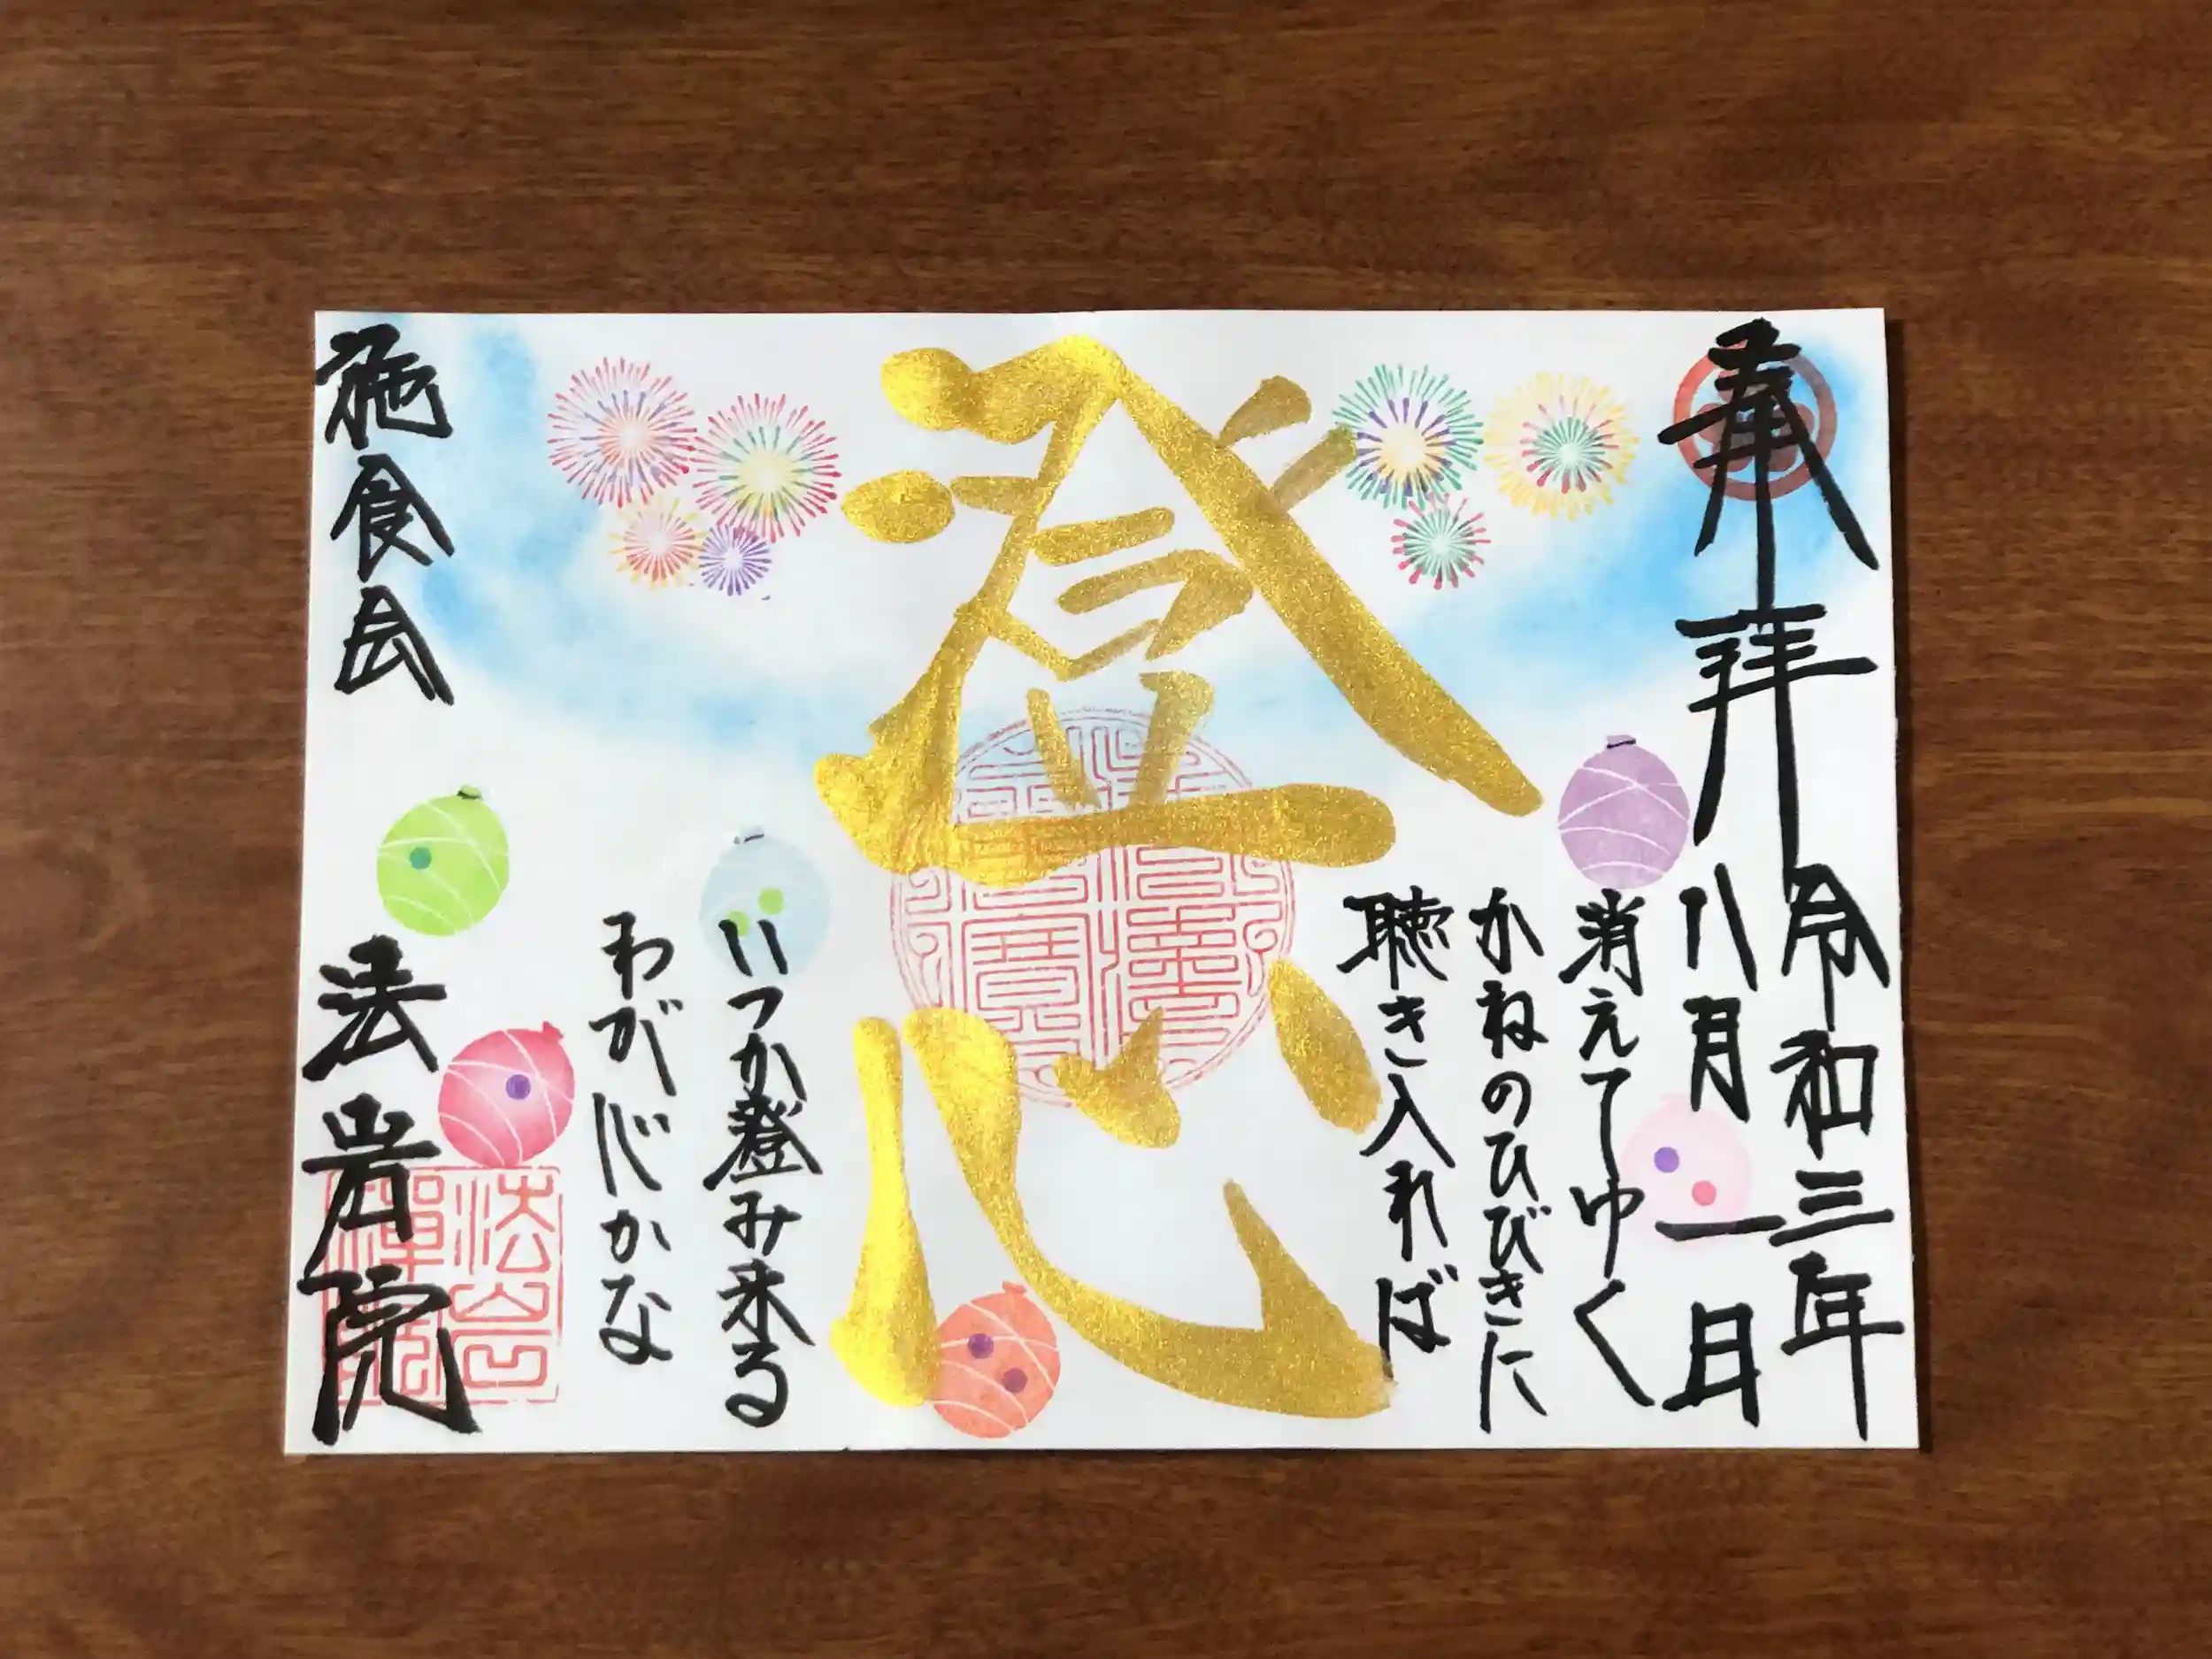 奉拝
令和三年
八月一日
消えてゆく
かねのひびきに
聴き入れば
澄心
いつか澄み来る
わが心かな
施食会
法岩院